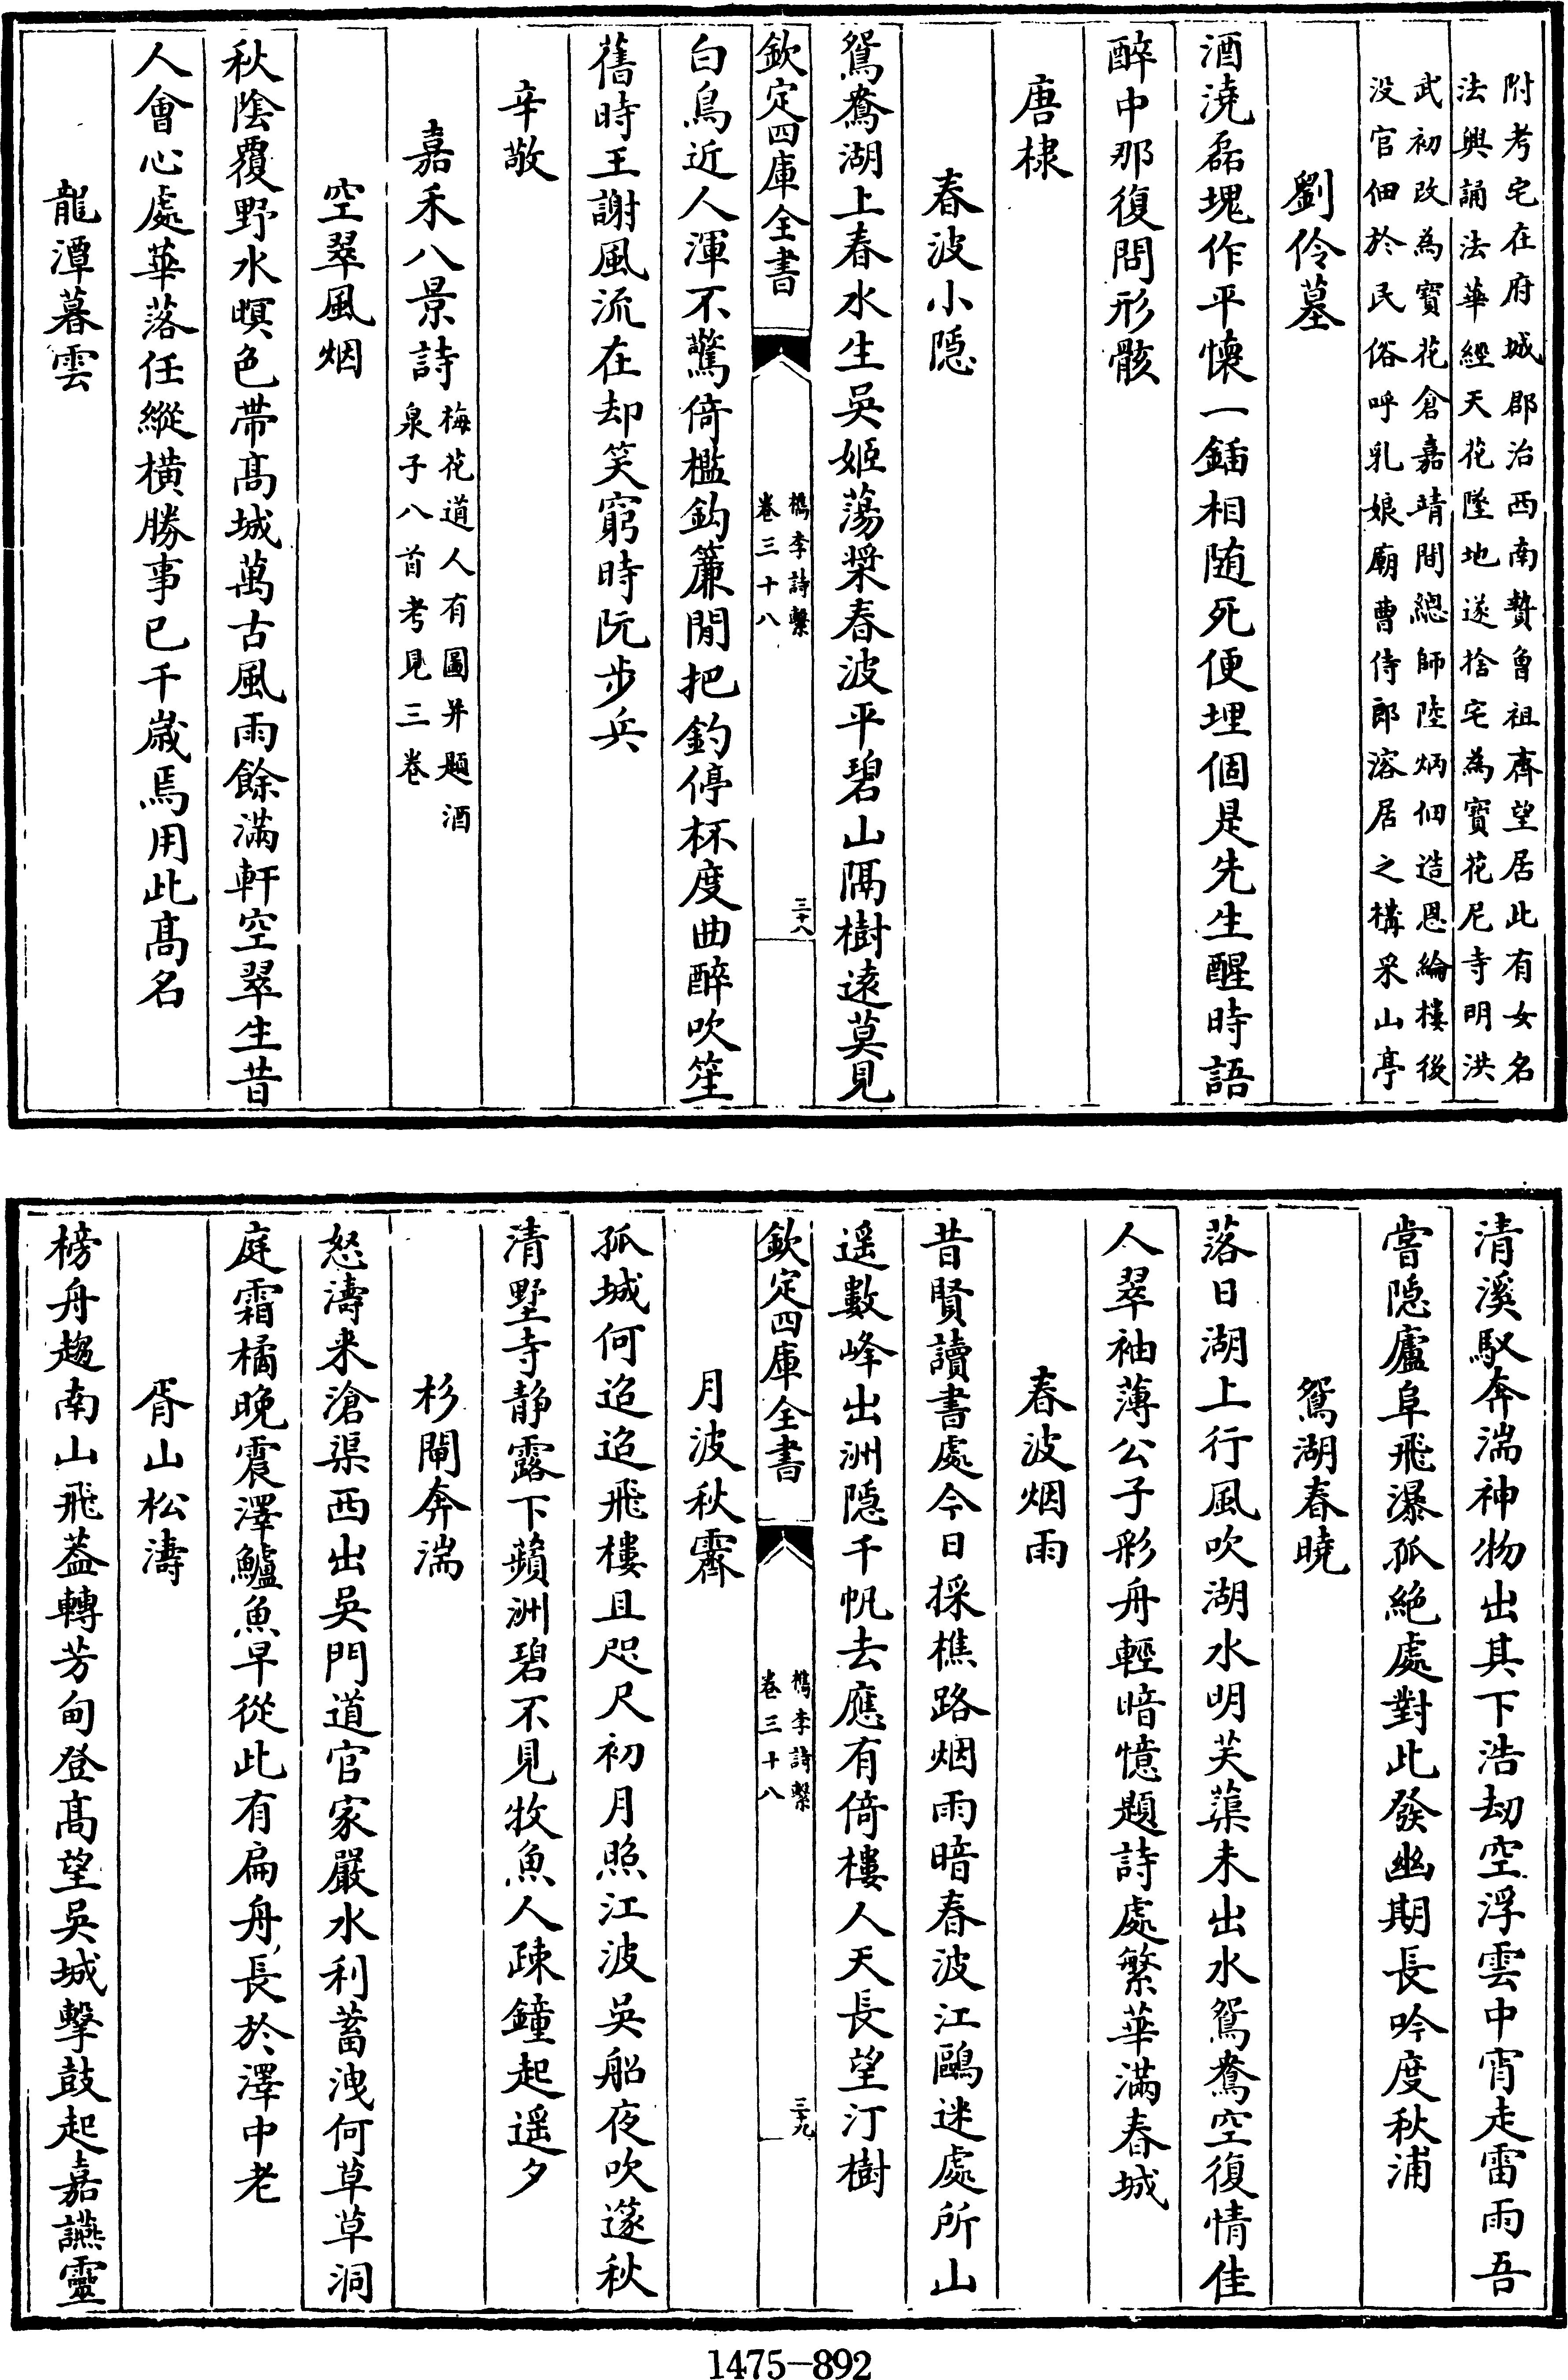 附考宅在府城郡治西南贅魯祖齋望居此有女名
法興誦法華經天花墜地遂捨宅為寳花尼寺明洪
武初改為寳花倉嘉靖間總師陸炳佃造恩綸樓後
没官佃於民俗呼乳娘廟曹侍郎溶居之構采山亭
劉伶墓
酒澆磊塊作平懐一鍤相随死便埋個是先生醒時語
醉中那復問形骸
唐棣
春波小隠
鴛鴦湖上春水生吳姬蕩槳春波平碧山隔樹逺莫見
欽定四庫全書
檇李詩繫
卷三十八
三十八
白鳥近人渾不驚倚檻鈎簾閒把釣停杯度曲醉吹笙
舊時王謝風流在却笑窮時阮步兵
辛敬
嘉禾八景詩
梅花道人有圖并題酒
泉子八首考見三卷
空翠風烟
秋陰覆野水暝色帶髙城萬古風雨餘滿軒空翠生昔
人會心處華落任縱橫勝事已千歳焉用此髙名
龍潭暮雲
清溪馭奔湍神物出其下浩刼空浮雲中宵走雷雨吾
嘗隠廬阜飛瀑孤絶處對此發幽期長吟度秋浦
鴛湖春曉
落日湖上行風吹湖水明芙蕖未出水鴛鴦空復情佳
人翠袖薄公子彩舟輕暗憶題詩處繁華滿春城
春波烟雨
昔賢讀書處今日採樵路烟雨暗春波江鷗迷處所山
遥數峰出洲隠千帆去應有倚樓人天長望汀樹
欽定四庫全書
檇李詩繫
卷三十八
三十九
月波秋霽
孤城何迢迢飛樓且咫尺初月照江波吳船夜吹篴秋
清墅寺静露下蘋洲碧不見牧魚人疎鐘起遥夕
杉閘奔湍
怒濤来滄渠西出吳門道官家嚴水利蓄洩何草草洞
庭霜橘晚震澤鱸魚早從此有扁舟長於澤中老
胥山松濤
榜舟趨南山飛葢轉芳甸登髙望吳城擊鼓起嘉讌靈
1475-892